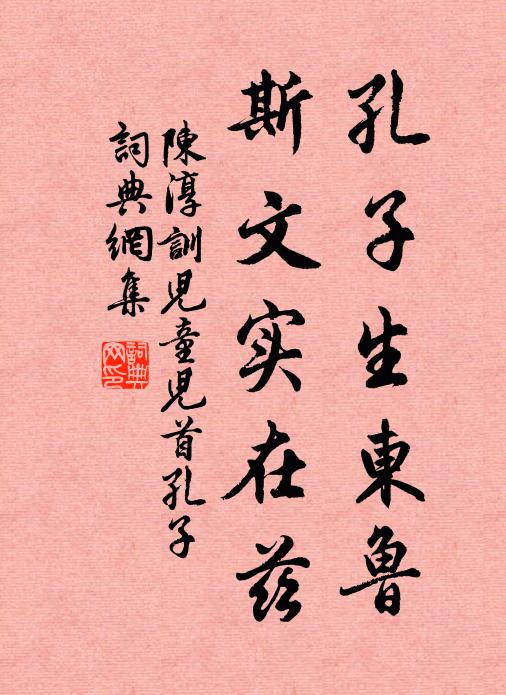 孔子生東魯
斯文实在茲
陳淳訓児童児首孔子
詞典網集
詞典網印